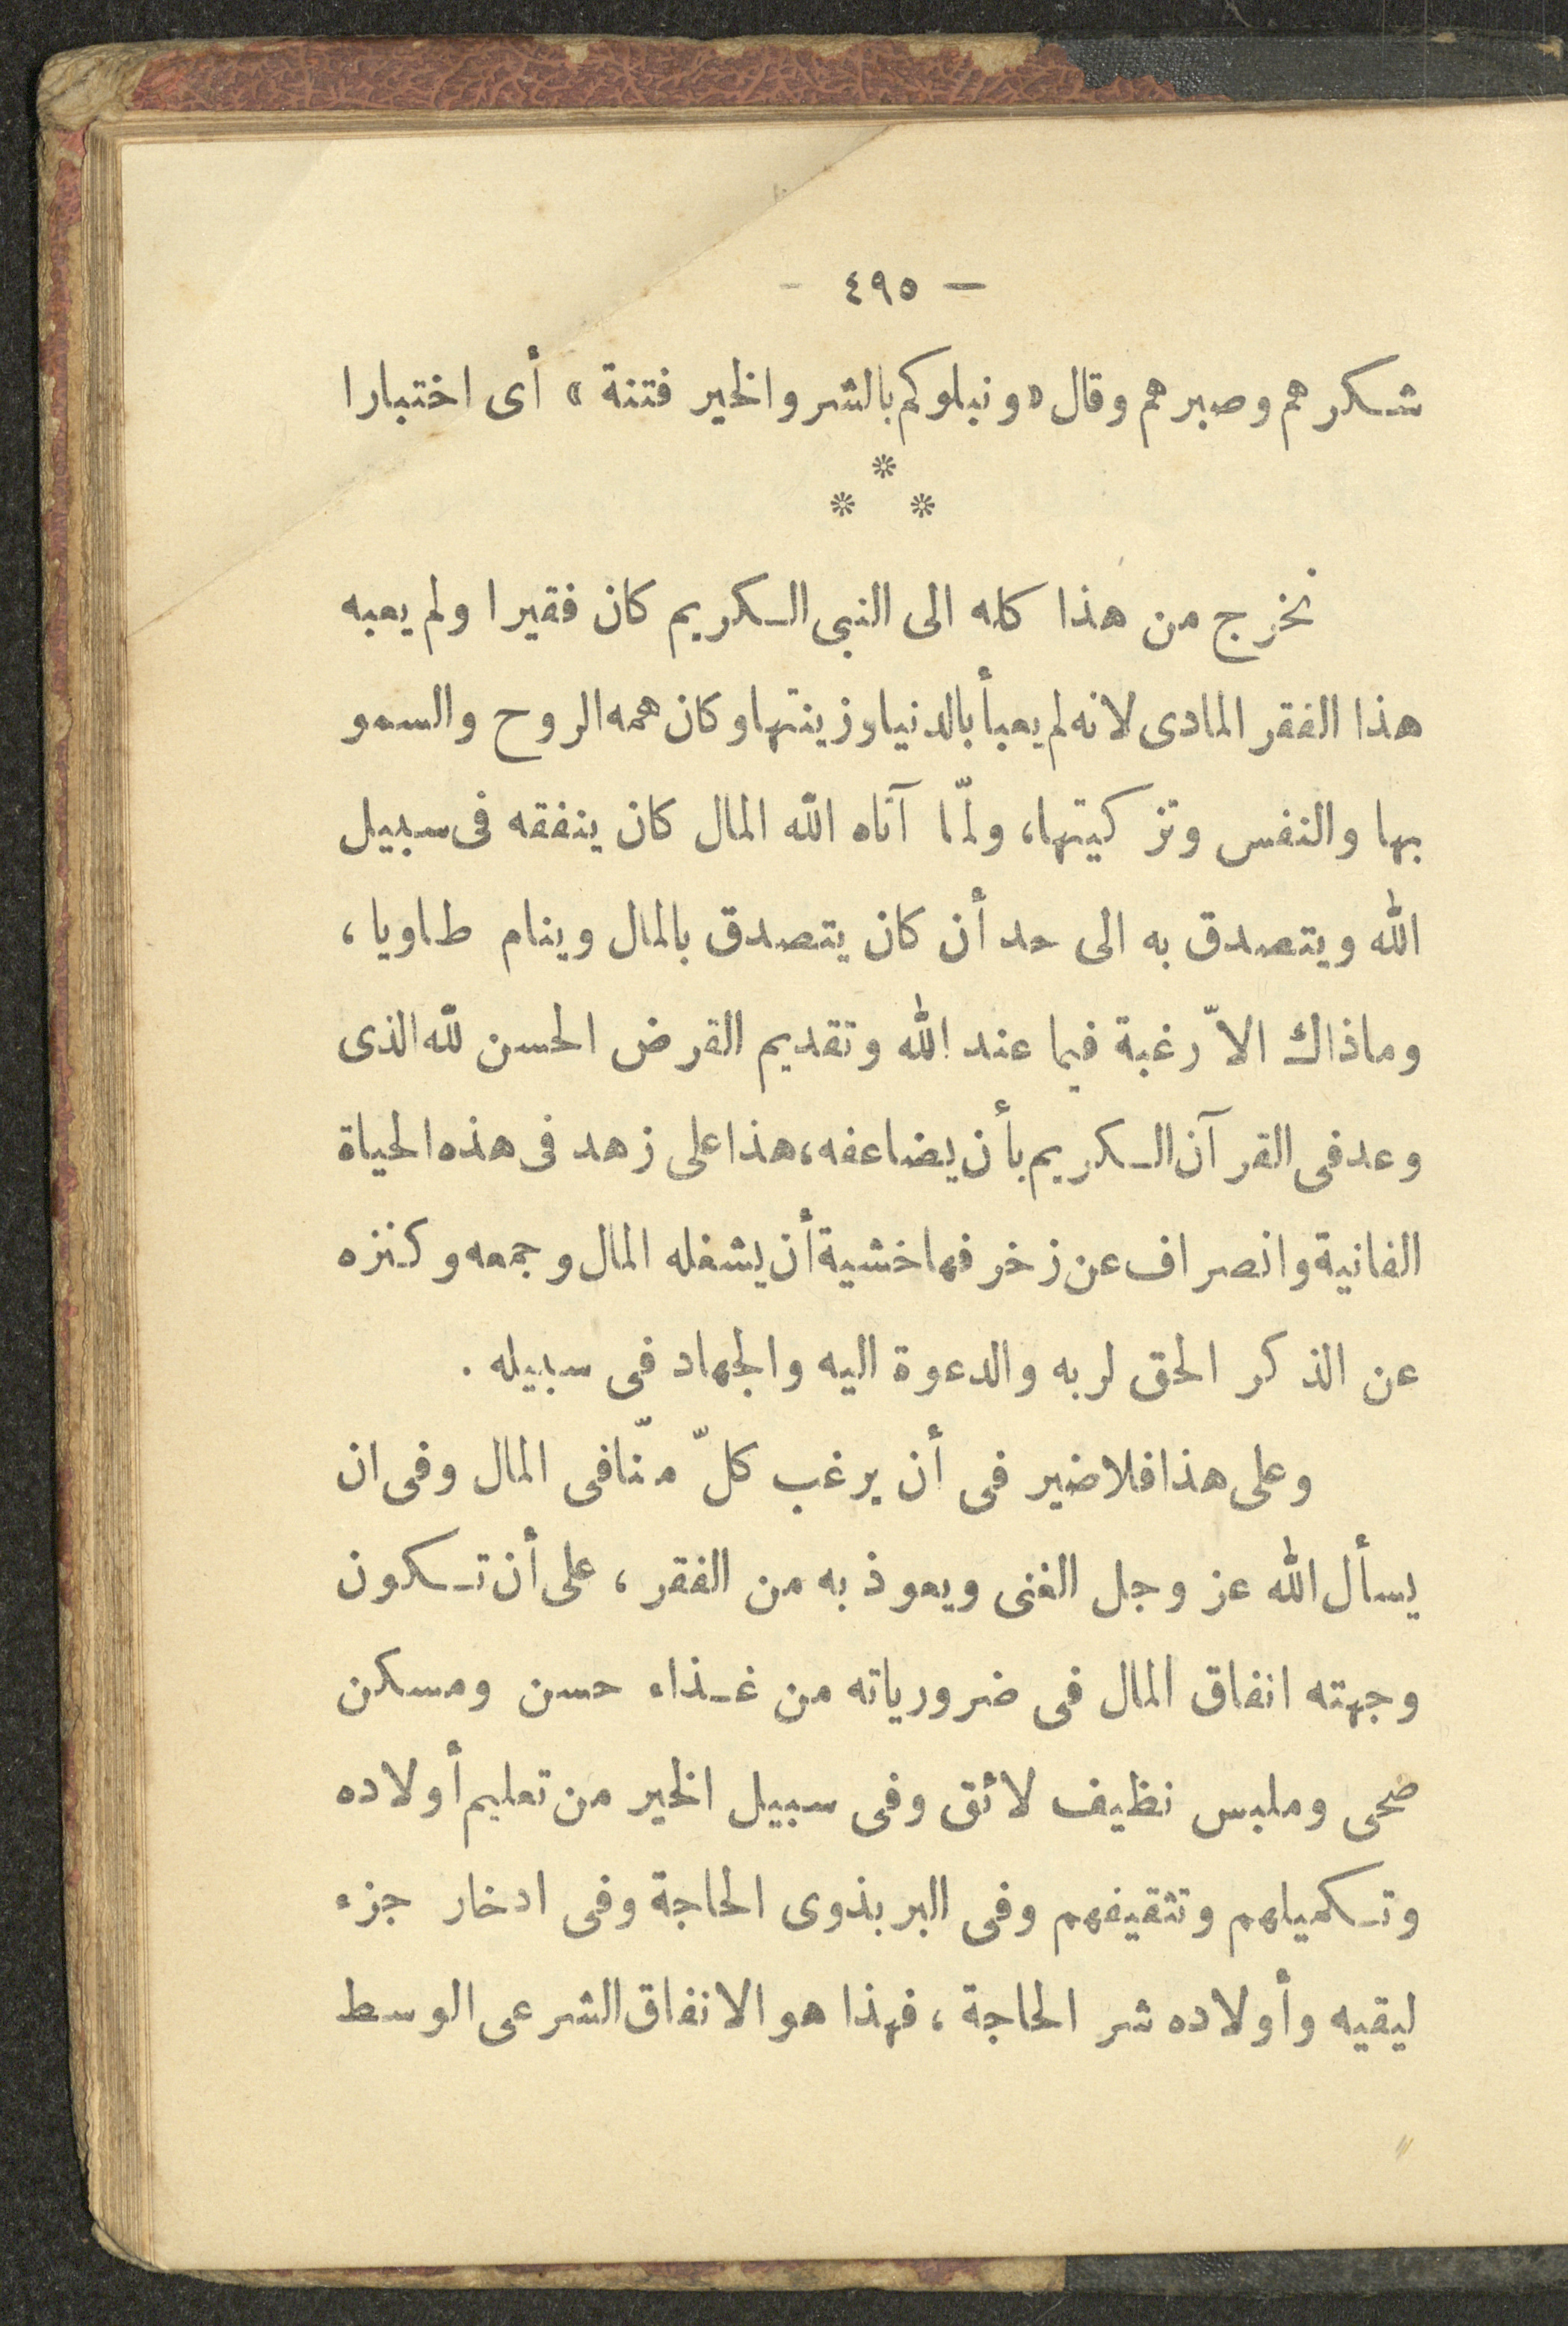 — ٤٩٥ -
شكرهم وصبرهم وقال «ونبلوكم بالشر والخير فتنة» أى اختبارا
*
* *
نخرج من هذا كله الى النبى الكريم كان فقيرا ولم يعبه
هذا الفقر المادى لانه لم يعبأ بالدنيا وزينتها وكان همه الروح والسمو
بها والنفس وتزكيتها، ولمّا آتاه الله المال كان ينفقه فى سبيل
الله ويتصدق به الى حد أن كان يتصدق بالمال وينام طاويا،
وماذاك الاّ رغبة فيما عند الله وتقديم القرض الحسن لله الذى
وعد فى القرآن الكريم بأن يضاعفه، هذا على زهد فى هذه الحياة
الفانية وانصراف عن زخرفها خشية أن يشغله المال وجمعه وكنزه
عن الذكر الحق لربه والدعوة اليه والجهاد فى سبيله .
وعلى هذا فلا ضير فى أن يرغب كلّ منّا فى المال وفى ان
يسأل الله عز وجل الغنى ويعوذ به من الفقر، على أن تكون
وجهته انفاق المال فى ضرورياته من غذاء حسن ومسكن
صحى وملبس نظيف لائق وفى سبيل الخير من تعليم أولاده
وتكميلهم وتثقيفهم وفى البر بذوى الحاجة وفى ادخار جزء
ليقيه وأولاده شر الحاجة، فهذا هو الانفاق الشرعى الوسط